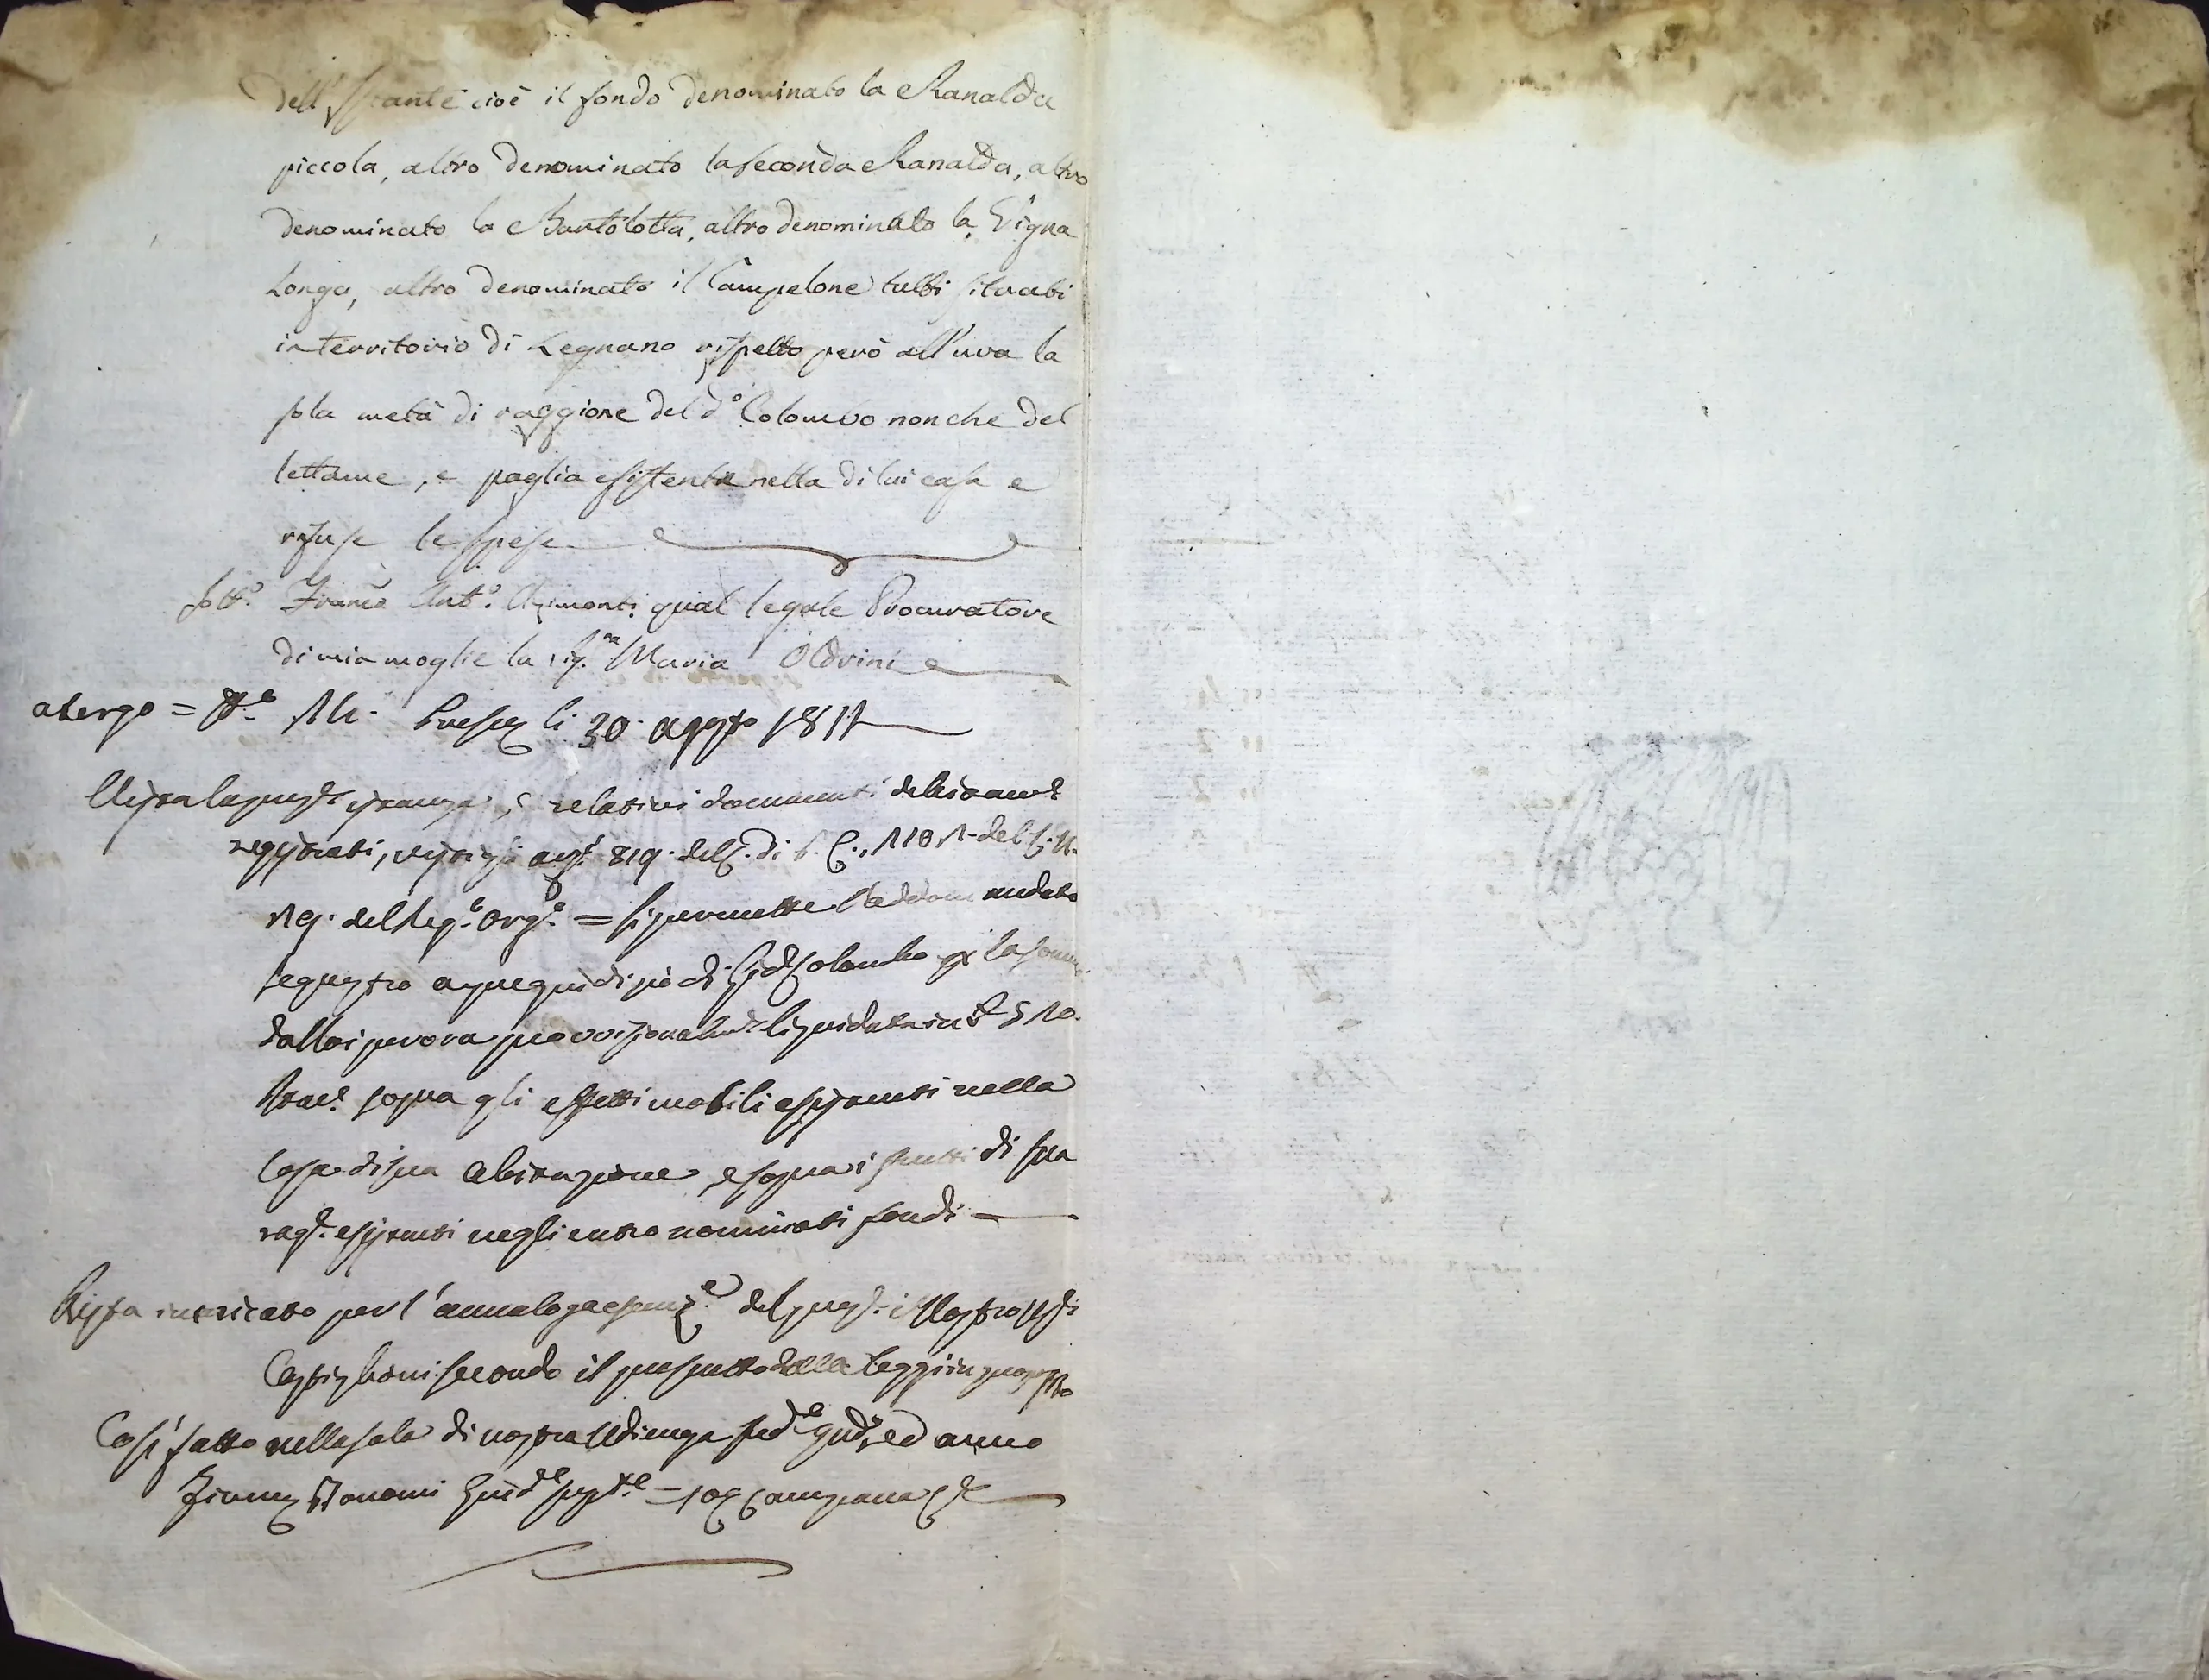 dell'Istante cioè il fondo denominato la Ranalda
piccola, altro denominato la seconda Ranalda, altro
denominato la Bartolotta, altro denominato la Vigna
Longa, altro denominato il Campelone tutti situati
in territorio di Legnano rispetto però all'uva la
sola metà di raggione del do Colombo non che del
lettame, e paglia esistente nella di lui casa e
rifuse le spese
sotto. Franco Anto. Azimonti qual legale Procuratore
di mia moglie la sig.ra Maria Oldrini
a tergo = li 30 agosto 1811
Vista la istanza, e relativi documenti debitamte
registrati, visti gli 819. del C. di P. C.,
del Rego. Orgo. = si permette l'addomandato
sequestro a pregiudizio di Colombo per la somma
dalla per ora provvisionalmte liquidata in 510.
sopra gli effetti mobili esistenti nella
Casa di sua abitazione, e sopra i frutti di sua
rage. esistenti negli entro nominati fondi
Resta incaricato per l'annaloga esecuze. del il Nostro
Castiglioni secondo il prescritto dalla leggi in proposito
Così fatto nella sala di nostra Udienza sude. ed anno
Bonomi Giude. = Campana